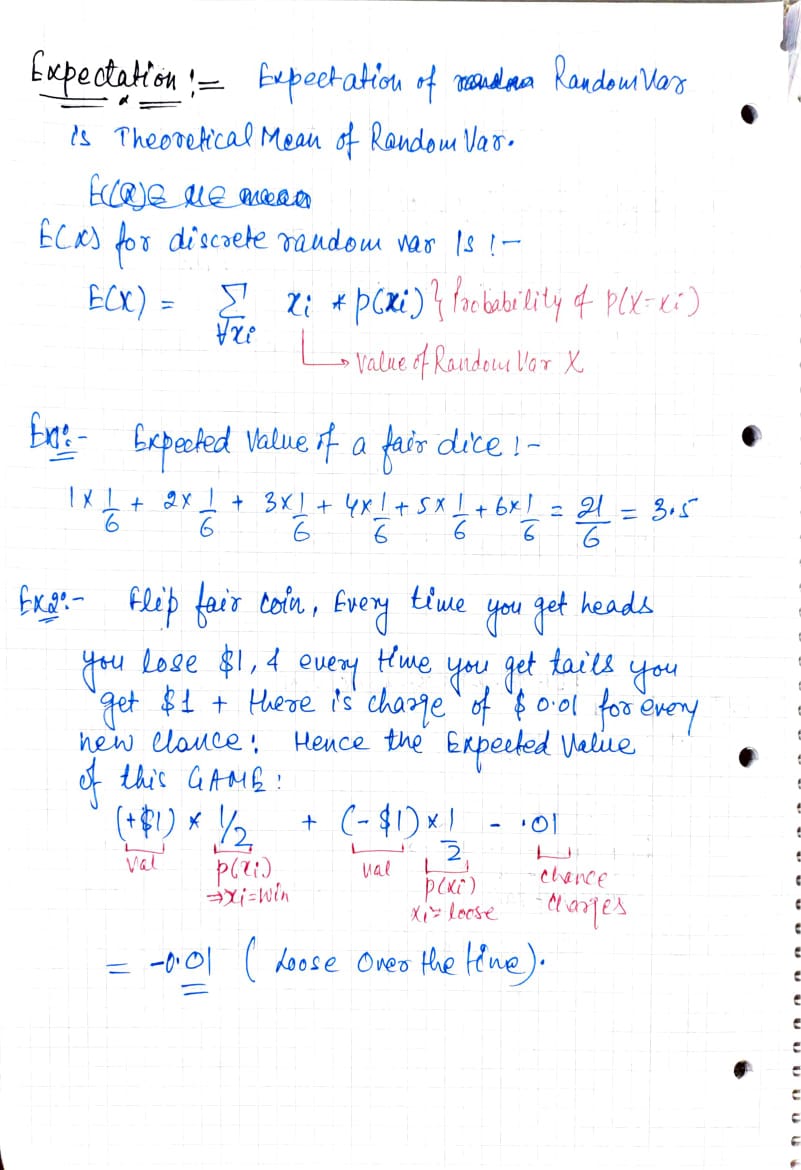 Expectation := Expectation of Random Var
is Theoretical Mean of Random Var.
E(x) for discrete random var is :-
E(X) = Σ xi * p(xi) } Probability of P(X=xi)
∀xi
↳ value of Random Var X
Ex1:- Expected Value of a fair dice :-
1 x 1/6 + 2 x 1/6 + 3 x 1/6 + 4 x 1/6 + 5 x 1/6 + 6 x 1/6 = 21/6 = 3.5
Ex2:- Flip fair coin, Every time you get heads
you lose $1, & every time you get tails you
get $1 + there is charge of $0.01 for every
new chance: Hence the Expected Value
of this GAME:
(+$1) * 1/2 + (-$1) x 1/2 - .01
val p(xi) val p(xi) chance
⇒xi=win xi=loose charges
= -0.01 ( Loose Over the time).